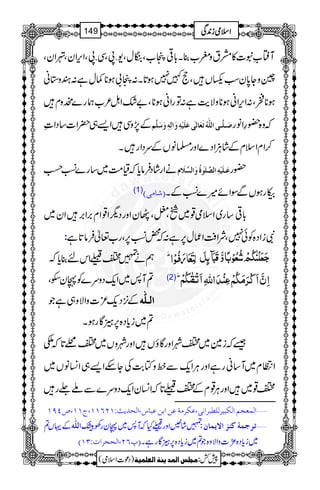 149 اسلامی زندگی
آفتابِ نبوت کا مشرق و مغرب بنا۔ باقی پنجاب، بنگال، یو۔پی، سی۔پی، ایران، تہران،
چین و جاپان سب یکساں ہیں، حج کہیں نہیں ہوتا۔ نہ پنجابی ہونا کمال ہے نہ ہندوستانی
ہونا فخر، نہ ایرانی ہونا ولایت ہے نہ تورانی ہونا، بے شک اہل عرب ہمارے مخدوم ہیں
کہ وہ حضورِ انور صَلَّی اللہُ تَعَالٰی عَلَیْہِ وَاٰلِہٖ وَسَلَّم کے پڑوسی ہیں ایسے ہی حضراتِ سادات
کرام اسلام کے شاہزادے اور مسلمانوں کے سردار ہیں۔
حضور عَلَیْہِ الصَّلٰوۃُ وَالسَّلَام نے ارشاد فرمایا کہ قیامت میں سارے نسب حسب
بیکار ہوں گے سوائے میرے نسب کے۔ (شامی) (1)
باقی ساری اسلامی قومیں شیخ، مغل، پٹھان، اور دیگر اقوام برابر ہیں ان میں
نبی زادہ کوئی نہیں، شرافت اعمال پر ہے نہ کہ محض نسب پر، رب تعالیٰ فرماتا ہے:
جَعَلْنٰكُمْ شُعُوْبًا وَّ قَبَآىٕلَ لِتَعَارَفُوْاؕ ہم نے تمہیں مختلف قبیلے اس لئے بنایا کہ
اِنَّ اَكْرَمَكُمْ عِنْدَ اللّٰهِ اَتْقٰىكُمْؕ (2) تم آپس میں ایک دوسرے کو پہچان سکو،
اللہ کے نزدیک عزت والا وہی ہے جو
تم میں زیادہ پرہیز گار ہو۔
جیسے کہ زمین میں مختلف شہر اور شہروں میں مختلف محلے
انتظام میں آسانی رہے اور ہر ایک سے خط و کتابت کی جاسکے ایسے ہی انسانوں میں
مختلف قومیں ہیں اور ہر قوم کے مختلف قبیلے تا کہ انسان ایک دوسرے سے ملے جلے رہیں
1......المعجم الکبیرللطبرانی،عکرمة عن ابن عباس،الحدیث:۱۱۶۲۱،ج۱۱،ص۱۹۴
2......ترجمۂ کنز الایمان:
زیادہ عزت والا وہ جو تم میں زیادہ پرہیزگار ہے۔(پ۲۶،الحجرات:۱۳)
پیش کش: مجلس المدینۃ العلمیۃ (دعوتِ اسلامی)